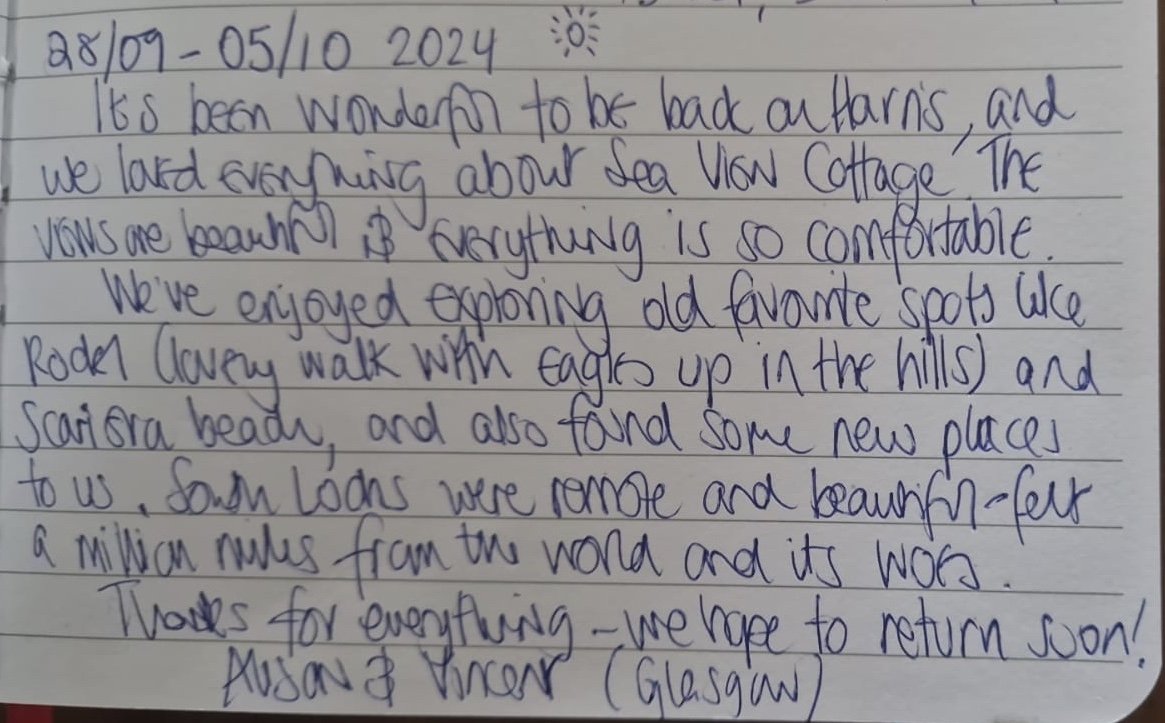 28/09 - 05/10 2024
It's been wonderful to be back on Harris, and
we loved everything about Sea View Cottage. The
views are beautiful & everything is so comfortable.
We've enjoyed exploring old favourite spots like
Rodel (lovely walk with eagles up in the hills) and
Scarista beach, and also found some new places
to us. South Lochs were remote and beautiful - felt
a million miles from the world and its woes.
Thanks for everything - we hope to return soon!
Alison & Vincent (Glasgow)